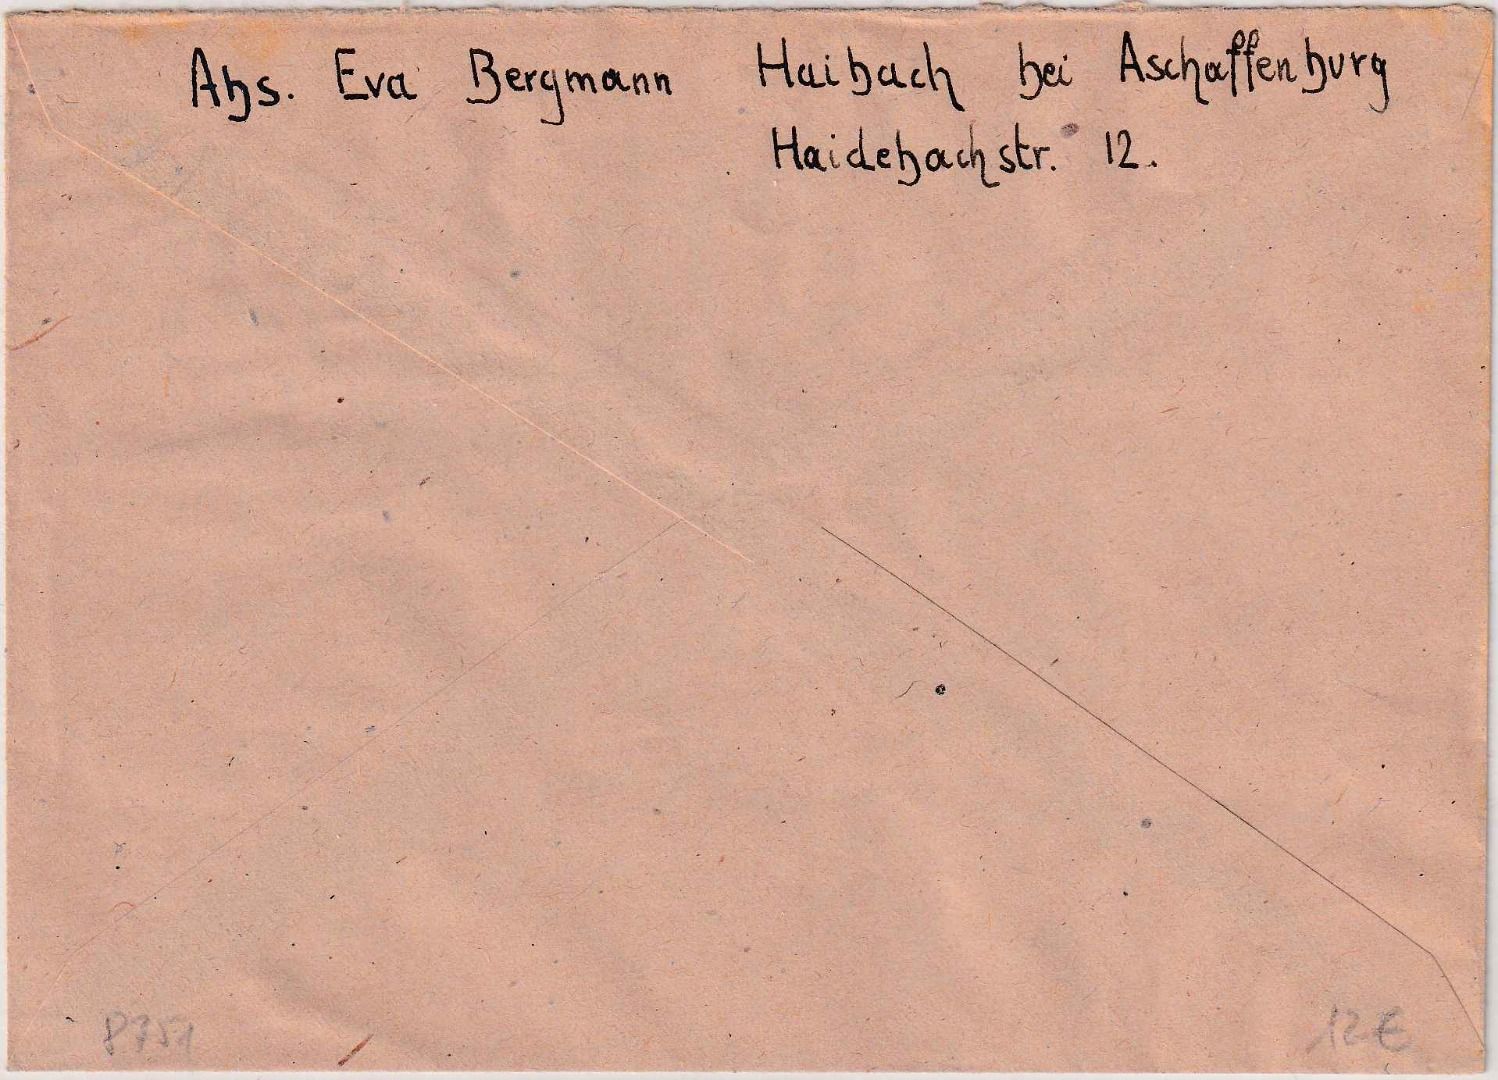 Abs. Eva Bergmann Haibach bei Aschaffenburg
Haidebachstr. 12.
8751 12 €